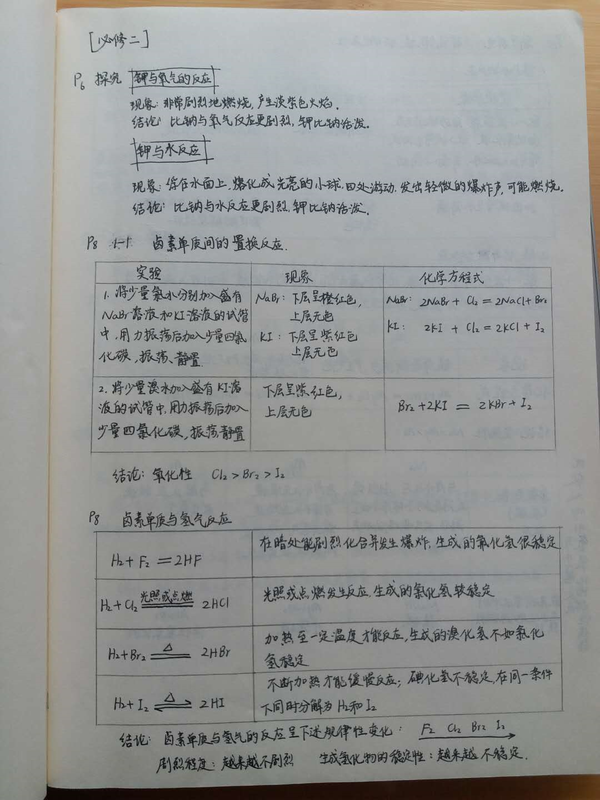 [必修二]
P6 探究 钾与氧气的反应
现象:非常剧烈地燃烧,产生淡紫色火焰。
结论:比钠与氧气反应更剧烈,钾比钠活泼。
钾与水反应
现象:浮在水面上,熔化成光亮的小球,四处游动,发出轻微的爆炸声,可能燃烧。
结论:比钠与水反应更剧烈,钾比钠活泼。
P8 1-1 卤素单质间的置换反应.
实验 现象 化学方程式
1. 将少量氯水分别加入盛有
NaBr溶液和KI溶液的试管
中,用力振荡后加入少量四氯
化碳,振荡、静置
NaBr:下层呈橙红色,
上层无色
KI:下层呈紫红色
上层无色
NaBr: 2NaBr + Cl₂ = 2NaCl + Br₂
KI: 2KI + Cl₂ = 2KCl + I₂
2. 将少量溴水加入盛有KI溶
液的试管中,用力振荡后加入
少量四氯化碳,振荡、静置
下层呈紫红色,
上层无色
Br₂+2KI = 2KBr+I₂
结论:氧化性 Cl₂ > Br₂ > I₂
P8 卤素单质与氢气反应
H₂+F₂ = 2HF 在暗处能剧烈化合并发生爆炸,生成的氟化氢很稳定
H₂+Cl₂ =光照或点燃= 2HCl 光照或点燃发生反应,生成的氯化氢较稳定
H₂+Br₂ =△= 2HBr 加热至一定温度才能反应,生成的溴化氢不如氯化
氢稳定
H₂+I₂ ⇌△ 2HI 不断加热才能缓慢反应;碘化氢不稳定,在同一条件
下同时分解为H₂和I₂
结论:卤素单质与氢气的反应呈下述规律性变化: F₂ Cl₂ Br₂ I₂
剧烈程度:越来越不剧烈 生成氢化物的稳定性:越来越不稳定.